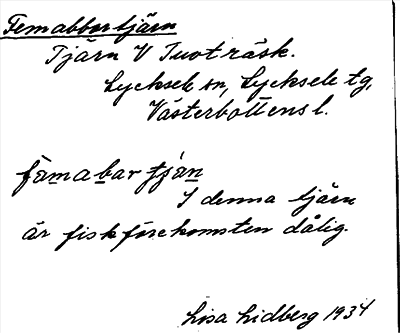 Femabbortjärn
Tjärn V Tuvträsk.
Lycksele sn, Lycksele tg,
Västerbottens l.
fämabar tján
I denna tjärn
är fiskförekomsten dålig.
Lisa Lidberg 1934